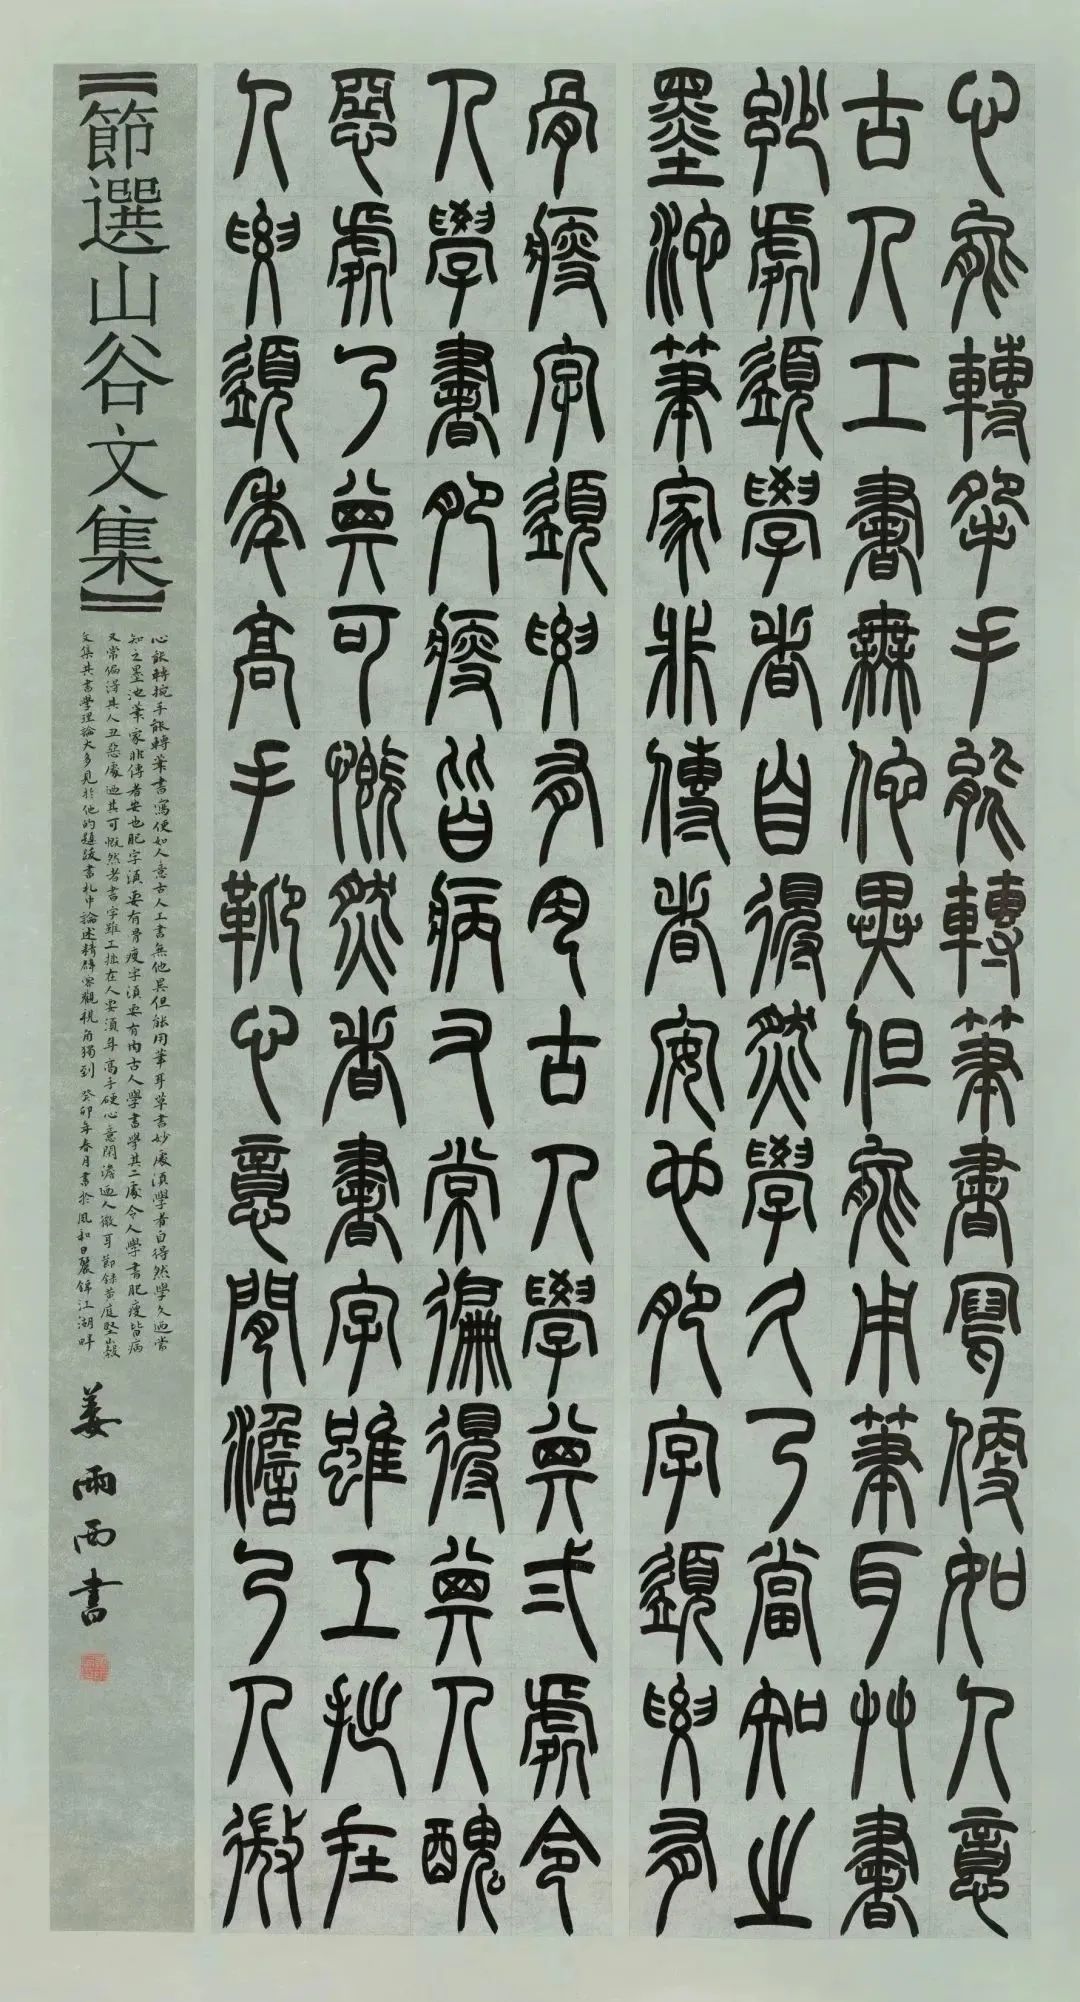 心能轉捥手能轉筆書寫便如人意
古人工書無他異但能用筆耳艸書
妙處須學者自得然學久乃當知之
墨池筆家非傳者妄也肥字須要有
骨瘦字須要有肉古人學其二處令
人學書肥瘦皆病又常偏得其人醜
惡處乃其可慨然者書字雖工拙在
人要須年高手硬心意閒澹乃人微
【節選山谷文集】
心能轉捥手能轉筆書寫便如人意古人工書無他異但能用筆耳草書妙處須學者自得然學久迺當
知之墨池筆家非傳者妄也肥字須要有骨瘦字須要有肉古人學書學其二處令人學書肥瘦皆病
又常偏得其人丑惡處迺其可慨然者書字雖工拙在人要須年高手硬心意閒澹迺人微耳節錄黃庭堅山谷
文集其書學理論大多見於他的題跋書札中論述精闢客觀視角獨到 癸卯年春月書於風和日麗錦江湖畔
姜雨西書